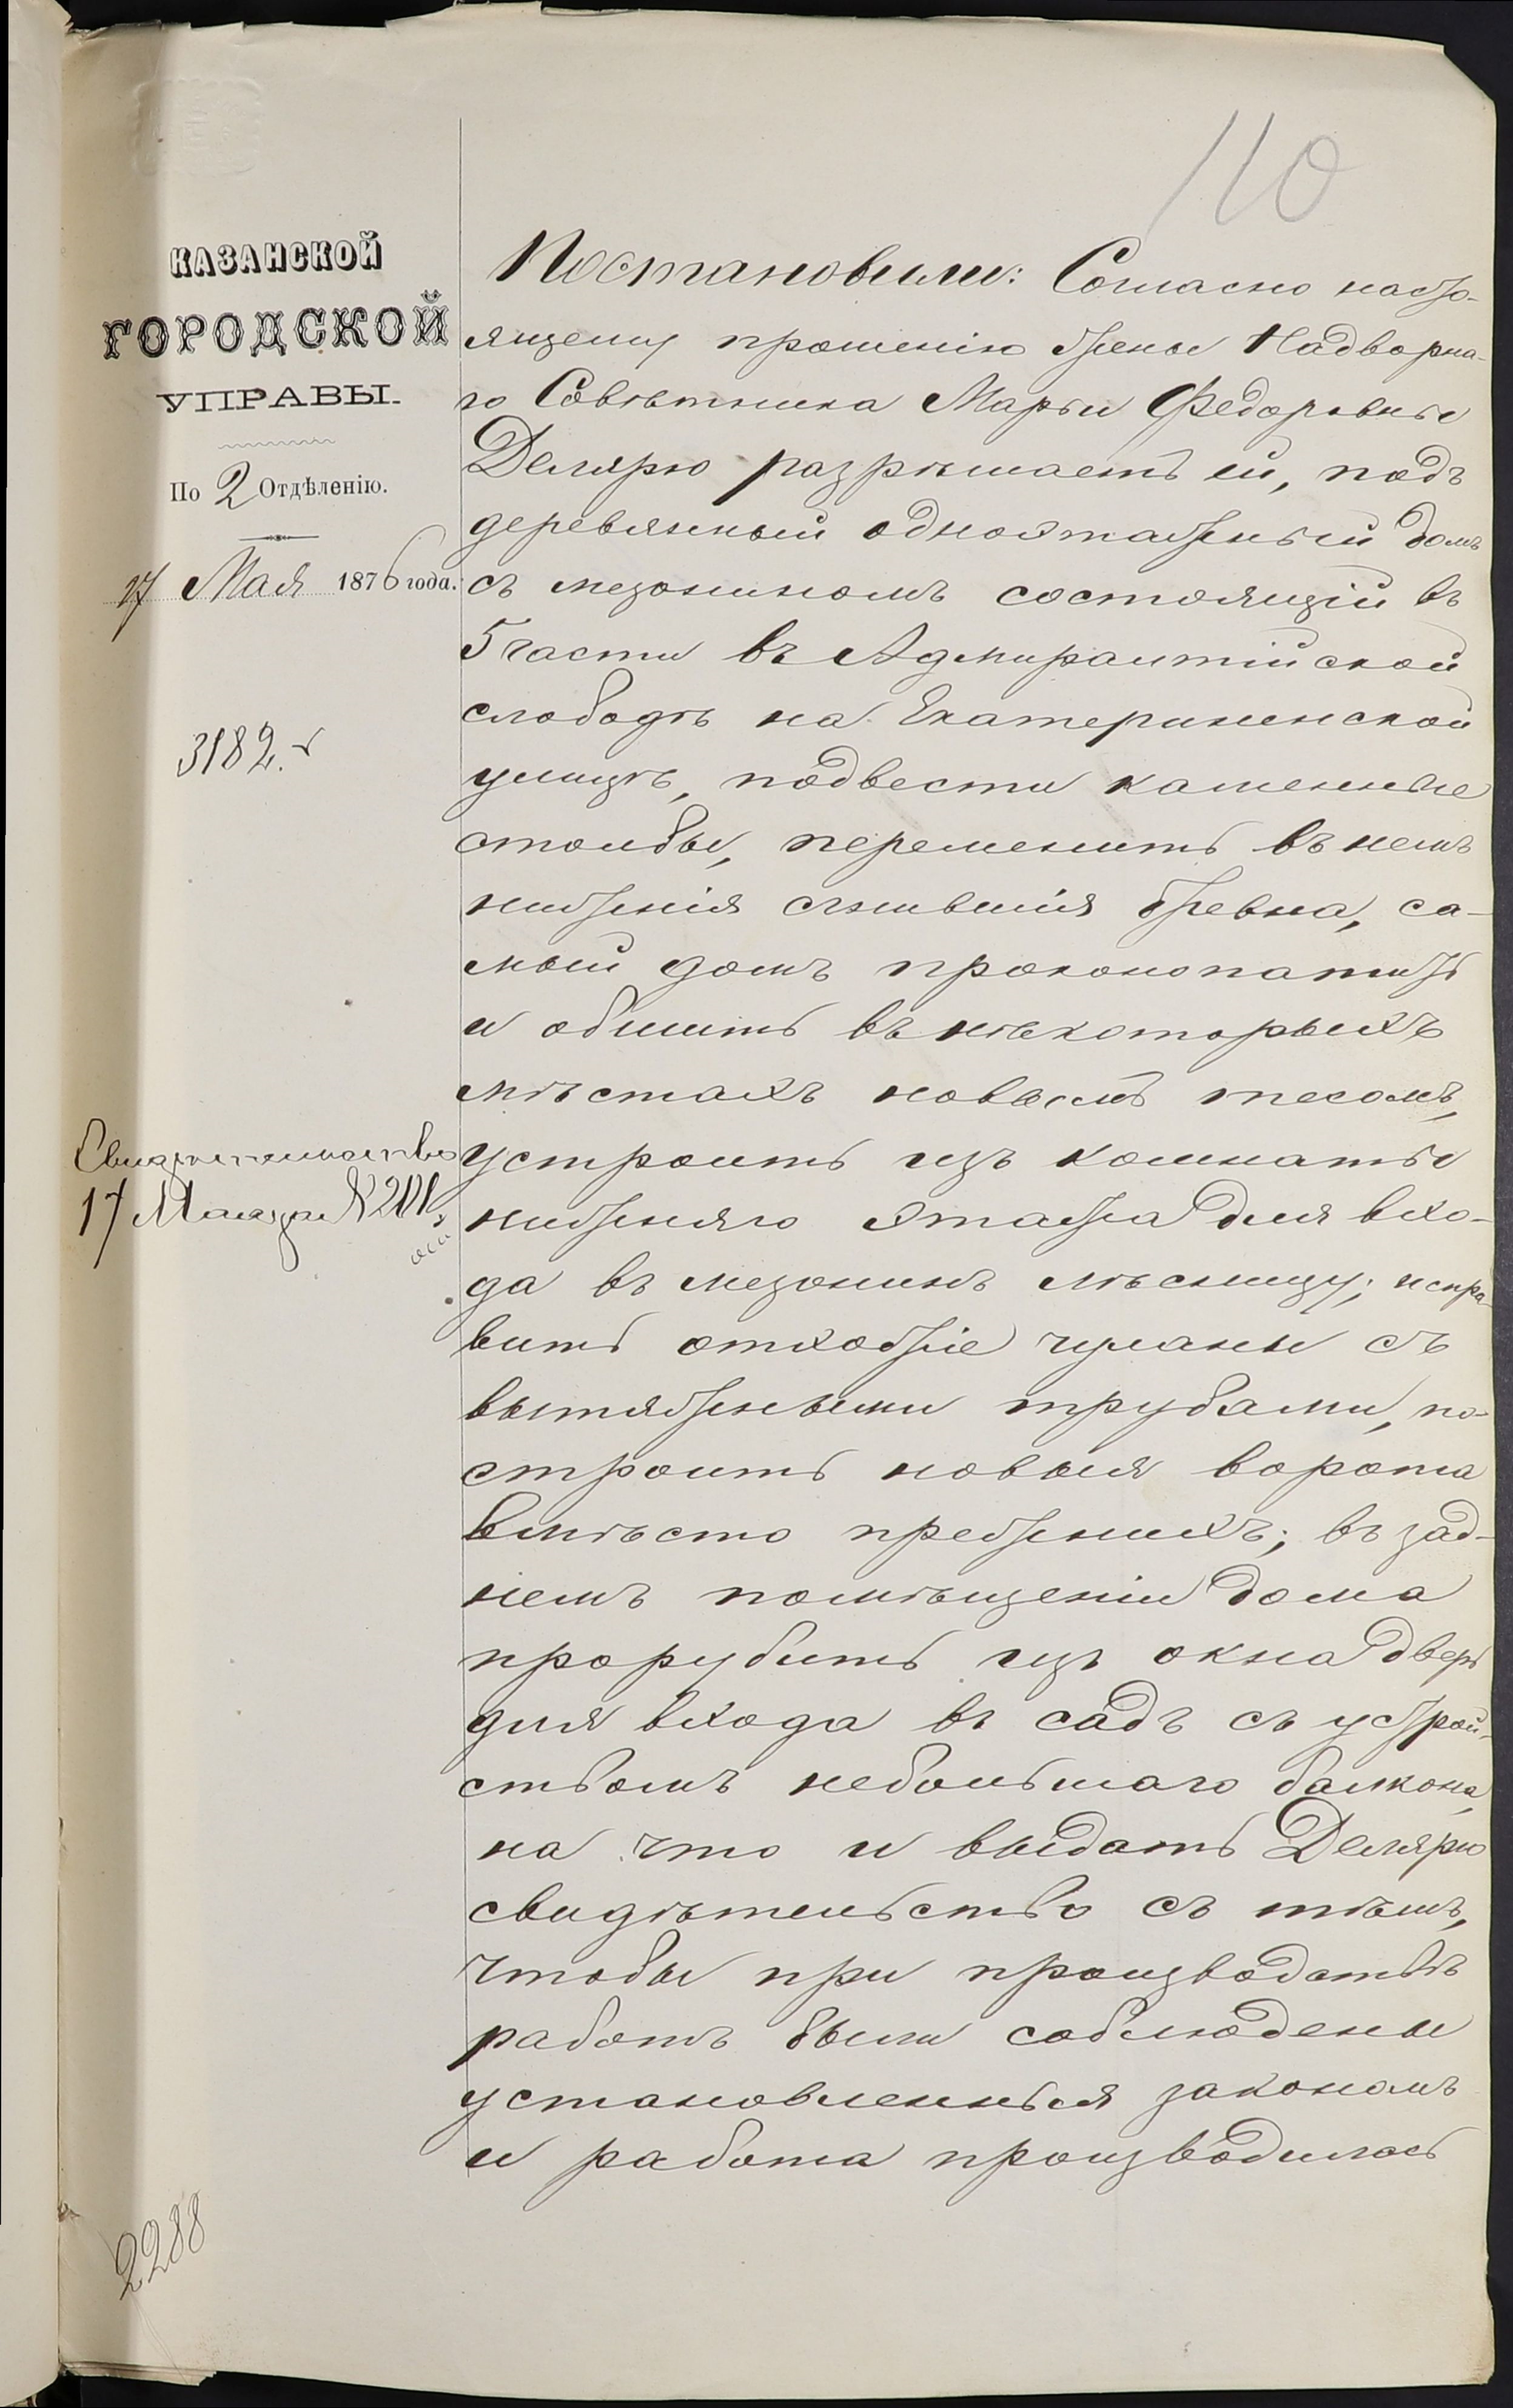 110
КАЗАНСКОЙ
ГОРОДСКОЙ
УПРАВЫ.
По 2 Отдѣленію.
17 Мая 1876 года.
3182.
Свидѣтельство
17 Мая за № 2101
2288
Постановили: Согласно насто-
ящему прошенію жены Надворна-
го Совѣтника Марьи Федоровны
Делярю разрѣшаетъ ей, подъ
деревянный одноэтажный домъ
съ мезониномъ состоящій въ
5 части въ Адмиралтійской
слободѣ на Екатериненской
улицѣ, подвести каменные
столбы, переменить въ немъ
нижнія сгнившія бревна, са-
мый домъ проконопатить
и обшить въ нѣкоторыхъ
мѣстахъ новымъ тесомъ,
устроить изъ комнаты
нижняго этажа для вхо-
да въ мезонинъ лѣсницу; испра-
вить отхожіе чуланы съ
вытяжными трубами, по-
строить новыя ворота
вмѣсто прежнихъ; въ зад-
немъ помѣщеніи дома
прорубить изъ окна дверь
для входа въ садъ съ устрой-
ствомъ небольшаго балкона,
на что и выдать Делярю
свидѣтельство съ тѣмъ,
чтобы при производствѣ
работъ были соблюдены
установленныя закономъ
и работа производилась